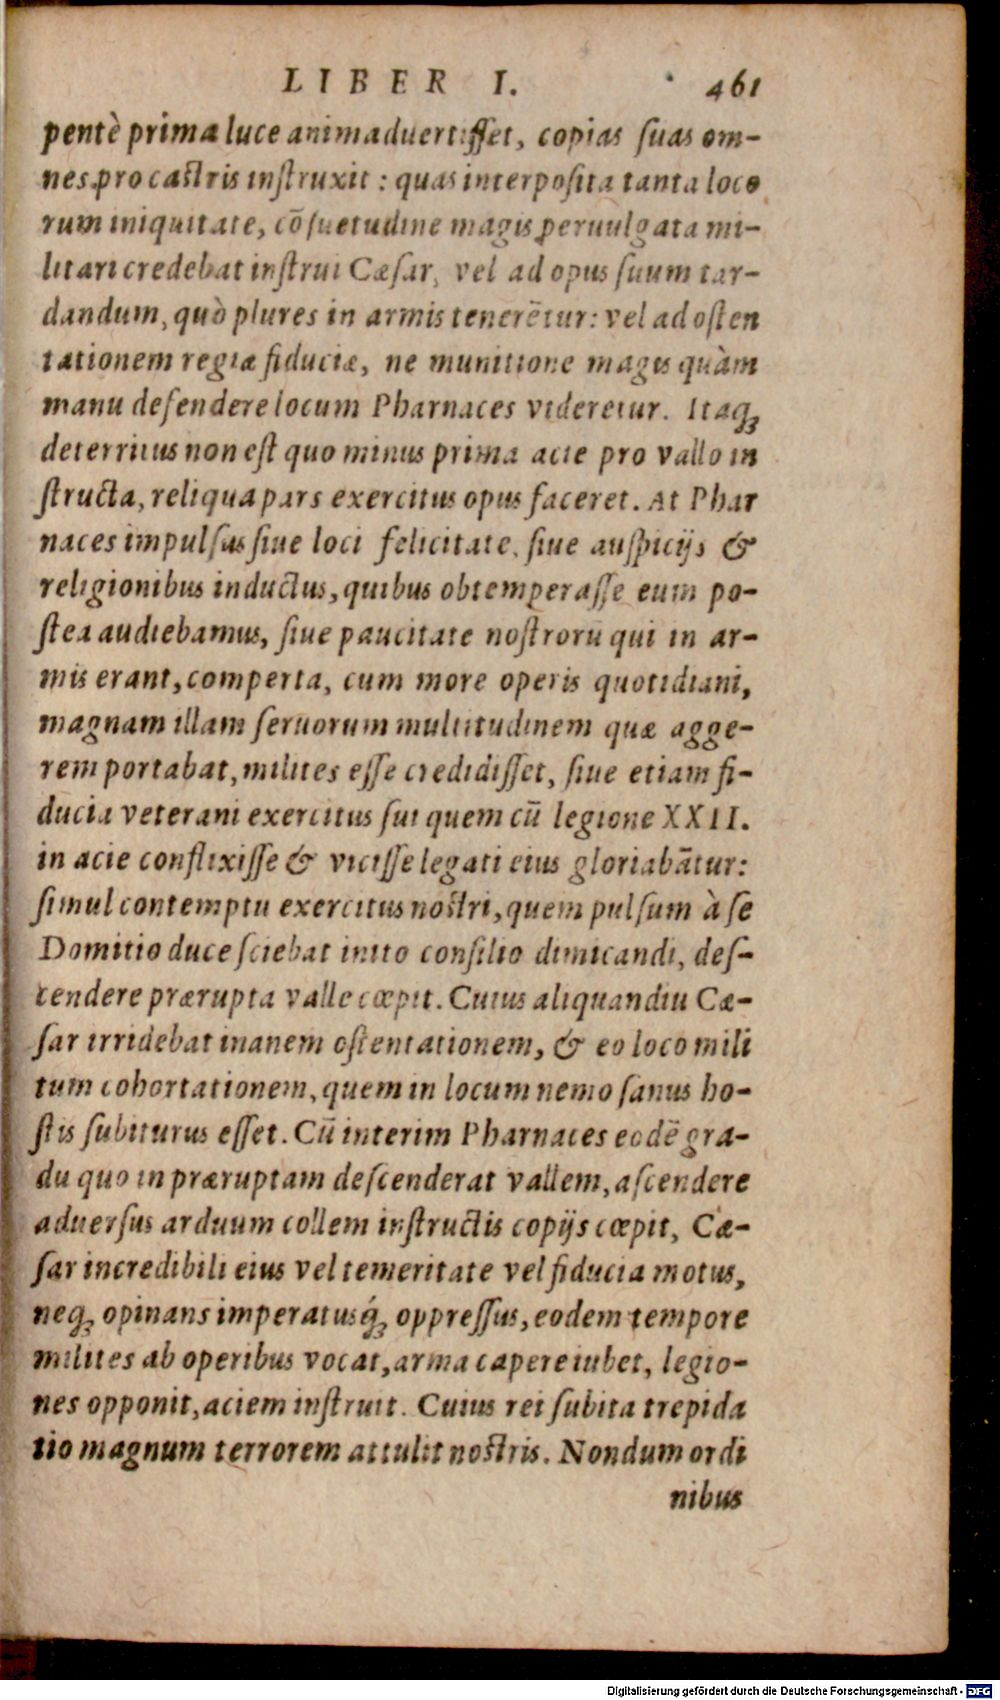 LIBER I. 461
pentè prima luce animaduertisset, copias suas om-
nes pro castris instruxit: quas interposita tanta loco
rum iniquitate, cōsuetudine magis peruulgata mi-
litari credebat instrui Cæsar, vel ad opus suum tar-
dandum, quò plures in armis tenerētur: vel ad osten
tationem regiæ fiduciæ, ne munitione magis quàm
manu defendere locum Pharnaces videretur. Itaqꝫ
deterritus non est quo minus prima acie pro vallo in
structa, reliqua pars exercitus opus faceret. At Phar
naces impulsus siue loci felicitate, siue auspicijs &
religionibus inductus, quibus obtemperasse eum po-
stea audiebamus, siue paucitate nostrorū qui in ar-
mis erant, comperta, cum more operis quotidiani,
magnam illam seruorum multitudinem quæ agge-
rem portabat, milites esse credidisset, siue etiam fi-
ducia veterani exercitus sui quem cū legione XXII.
in acie conflixisse & vicisse legati eius gloriabātur:
simul contemptu exercitus nostri, quem pulsum à se
Domitio duce sciebat inito consilio dimicandi, des-
cendere prærupta valle cœpit. Cuius aliquandiu Cæ-
sar irridebat inanem ostentationem, & eo loco mili
tum cohortationem, quem in locum nemo sanus ho-
stis subiturus esset. Cū interim Pharnaces eodē gra-
du quo in præruptam descenderat vallem, ascendere
aduersus arduum collem instructis copijs cœpit, Cæ-
sar incredibili eius vel temeritate vel fiducia motus,
neqꝫ opinans imperatusq́ꝫ oppressus, eodem tempore
milites ab operibus vocat, arma capere iubet, legio-
nes opponit, aciem instruit. Cuius rei subita trepida
tio magnum terrorem attulit nostris. Nondum ordi
nibus
Digitalisierung gefördert durch die Deutsche Forschungsgemeinschaft - DFG